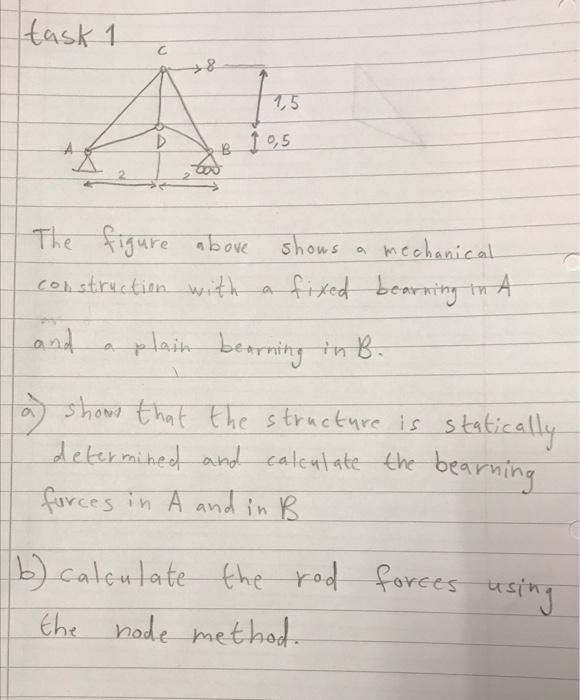 task 1
C
8
1,5
A
D
B
0,5
2
2
The figure above shows a mechanical
construction with a fixed bearning in A
and a plain bearning in B.
a) shows that the structure is statically
determined and calculate the bearning
forces in A and in B
b) calculate the rod forces using
the node method.